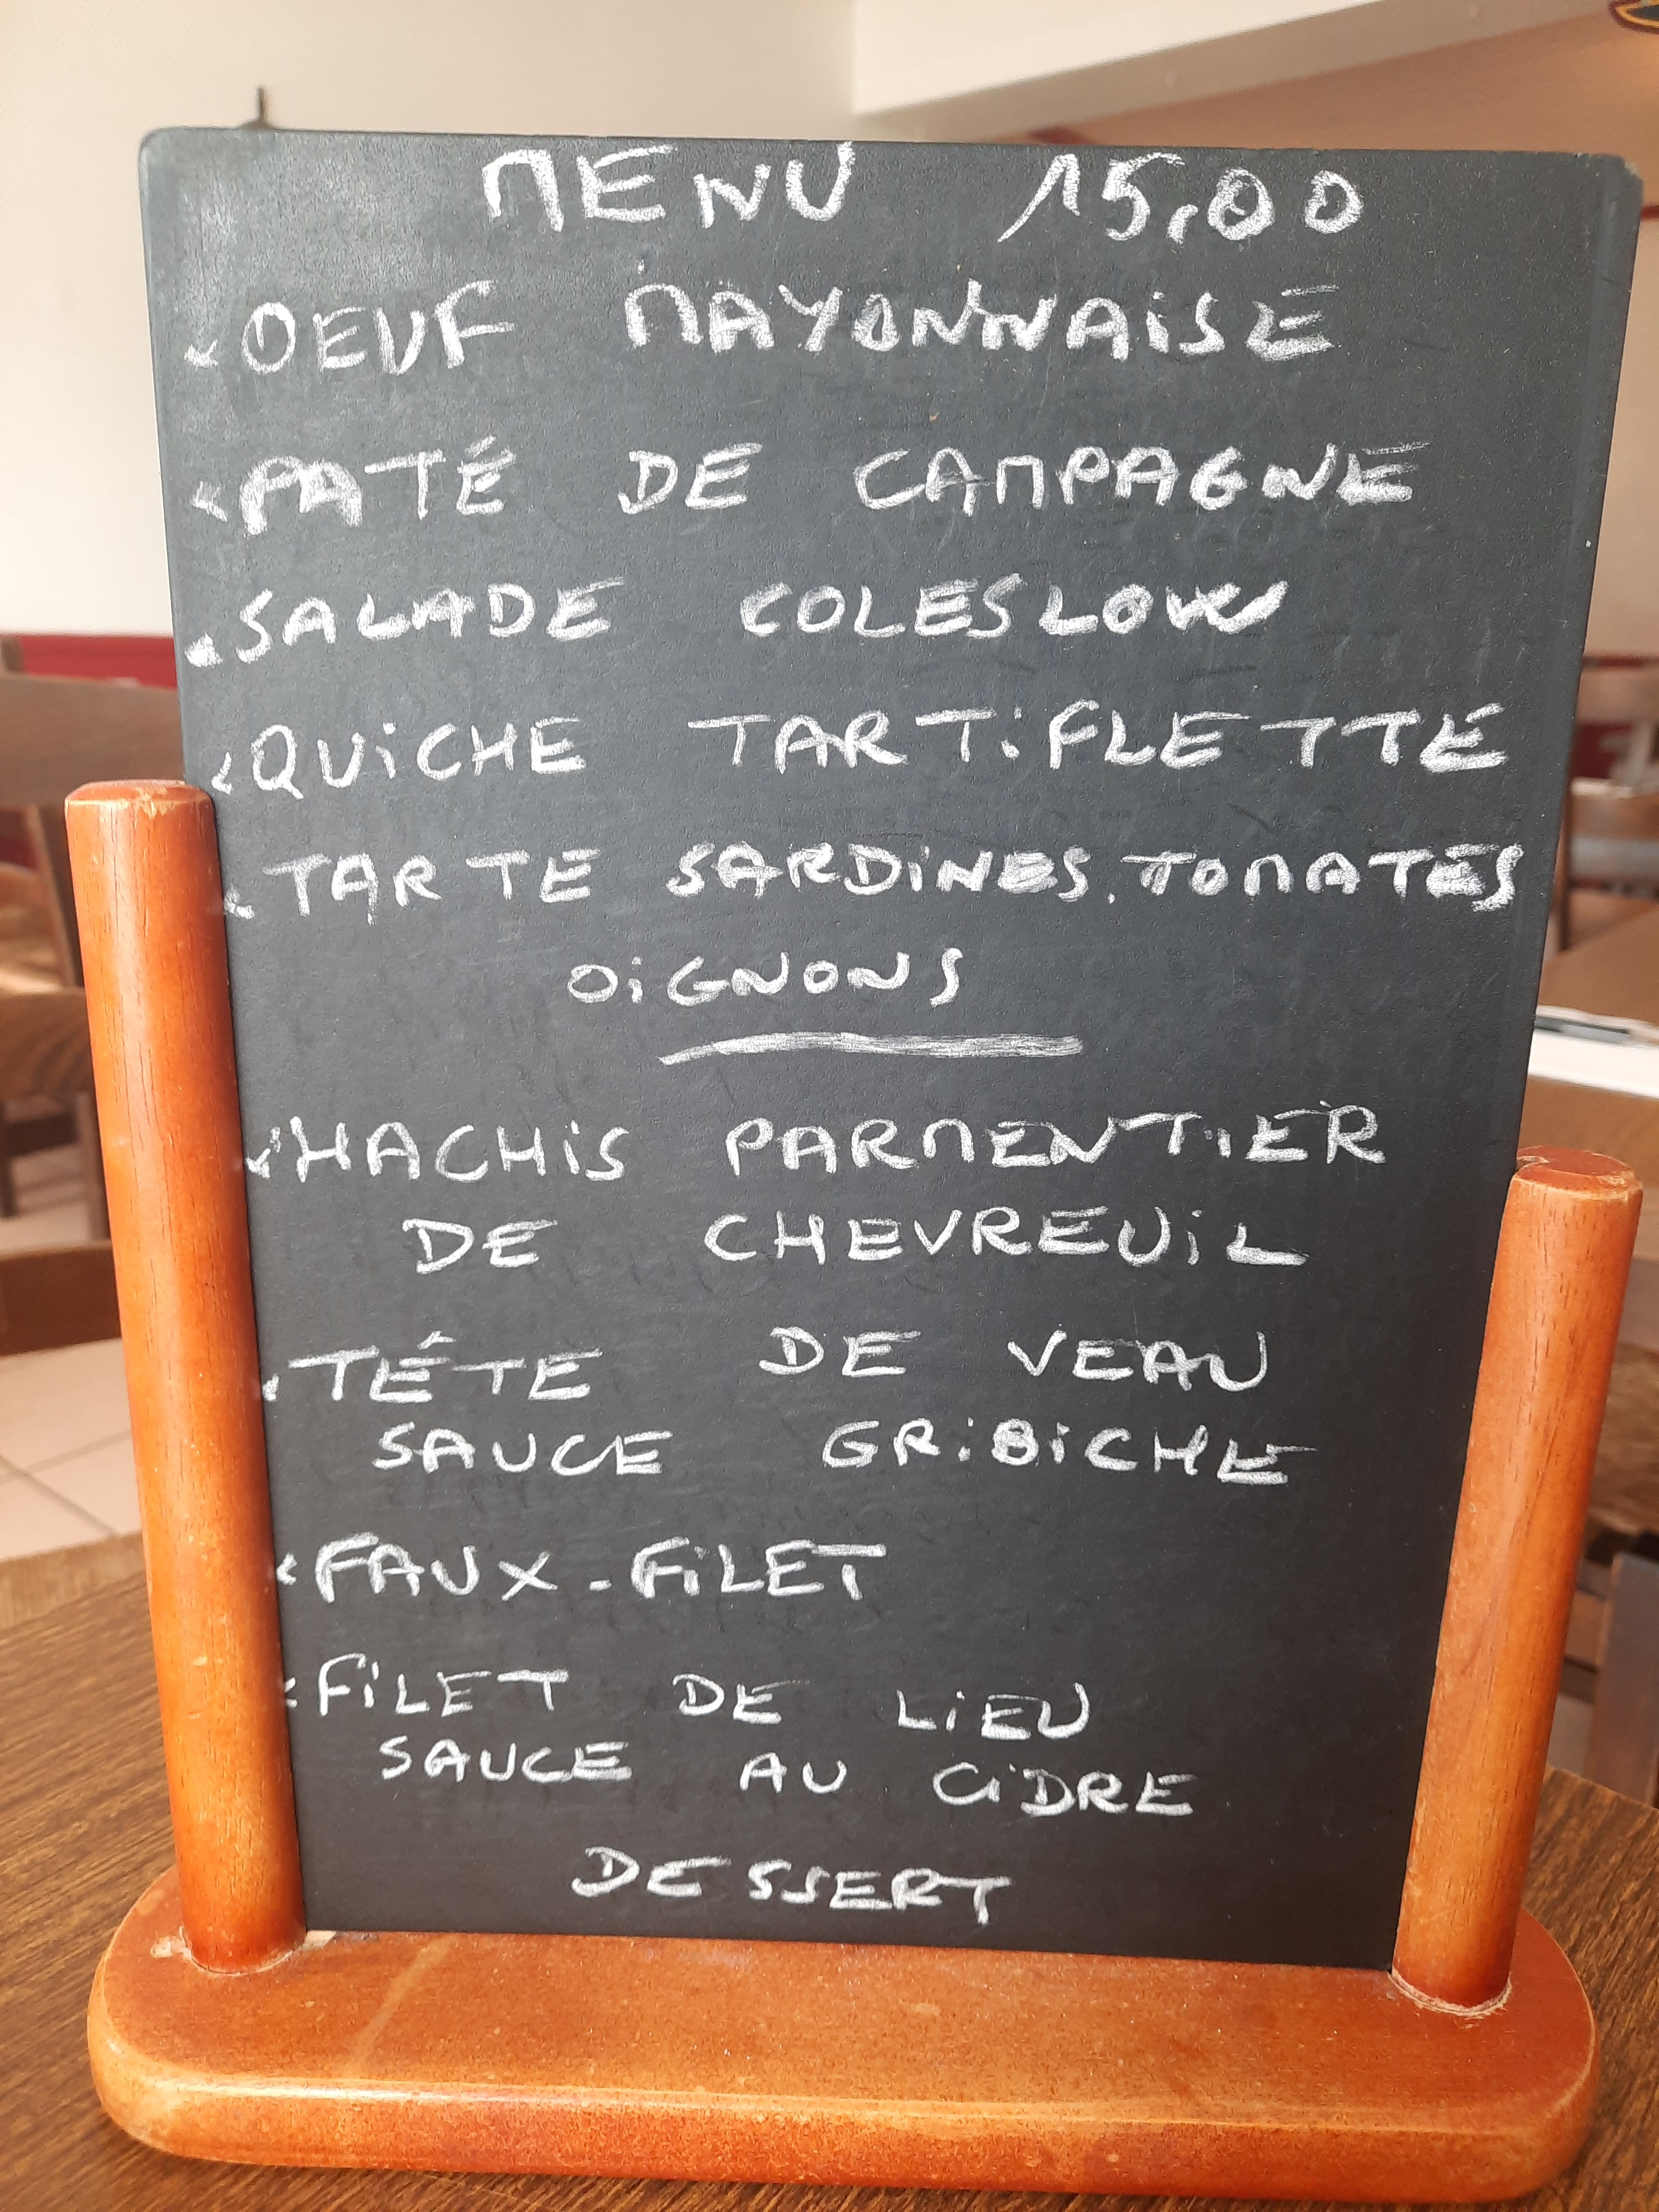 MENU 15,00
- OEUF MAYONNAISE
- PATÉ DE CAMPAGNE
- SALADE COLESLOW
- QUiCHE TARTiFLETTE
- TARTE SARDiNES.TOMATES
OiGNONS
- HACHiS PARMENTiER
DE CHEVREUiL
- TÉTE DE VEAU
SAUCE GRiBiCHE
- FAUX-FiLET
- FiLET DE LiEU
SAUCE AU CiDRE
DESSERT